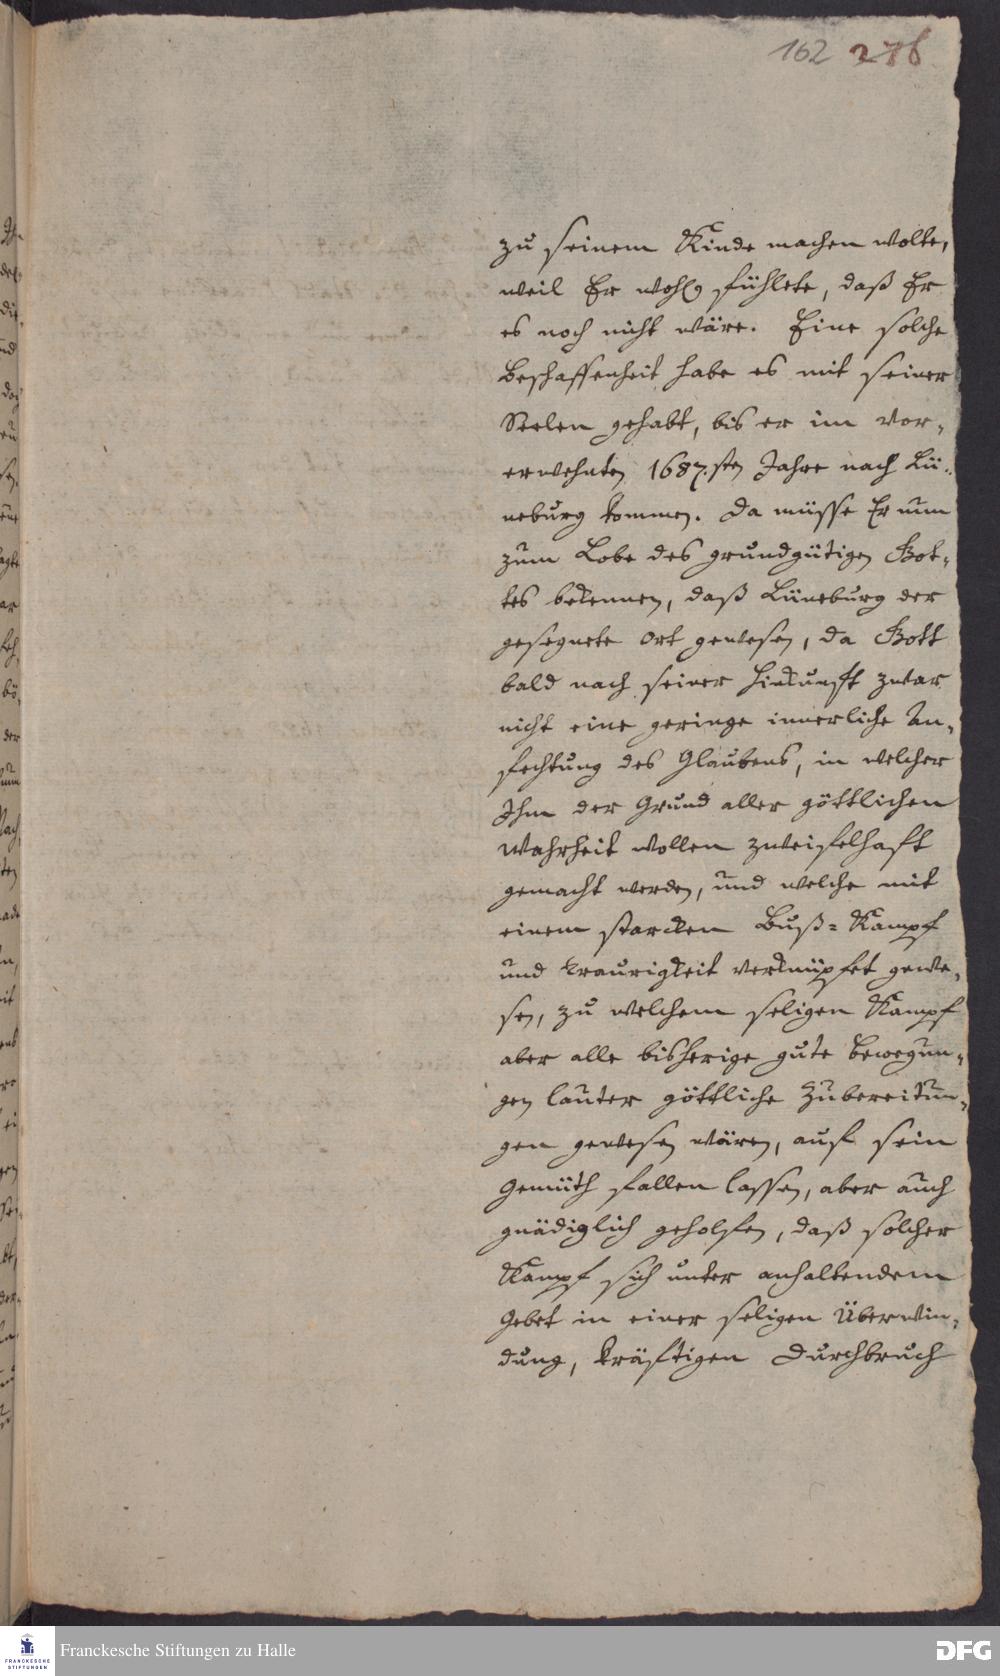 162 276
zu seinem Kinde machen wolte,
weil Er wohl fühlete, daß Er
es noch nicht wäre. Eine solche
Beschaffenheit habe es mit seiner
Seelen gehabt, bis er im vor-
erwehnten 1687.sten Jahre nach Lü-
neburg kommen. Da müsse Er nun
zum Lobe des grundgütigen Got-
tes bekennen, daß Lüneburg der
gesegnete Ort gewesen, da Gott
bald nach seiner Hinkunft zwar
nicht eine geringe innerliche An-
fechtung des Glaubens, in welcher
Ihm der Grund aller göttlichen
Wahrheit wollen zweifelhaft
gemacht werden, und welche mit
einem starcken Buß-Kampf
und Traurigkeit verknüpfet gewe-
sen, zu welchem seligen Kampf
aber alle bisherige gute Bewegun-
gen lauter göttliche Zubereitun-
gen gewesen wären, auf sein
Gemüth fallen lassen, aber auch
gnädiglich geholfen, daß solcher
Kampf sich unter anhaltendem
Gebet in einer seligen Überwin-
dung, kräftigen Durchbruch
FRANCKESCHE STIFTUNGEN
Franckesche Stiftungen zu Halle
DFG